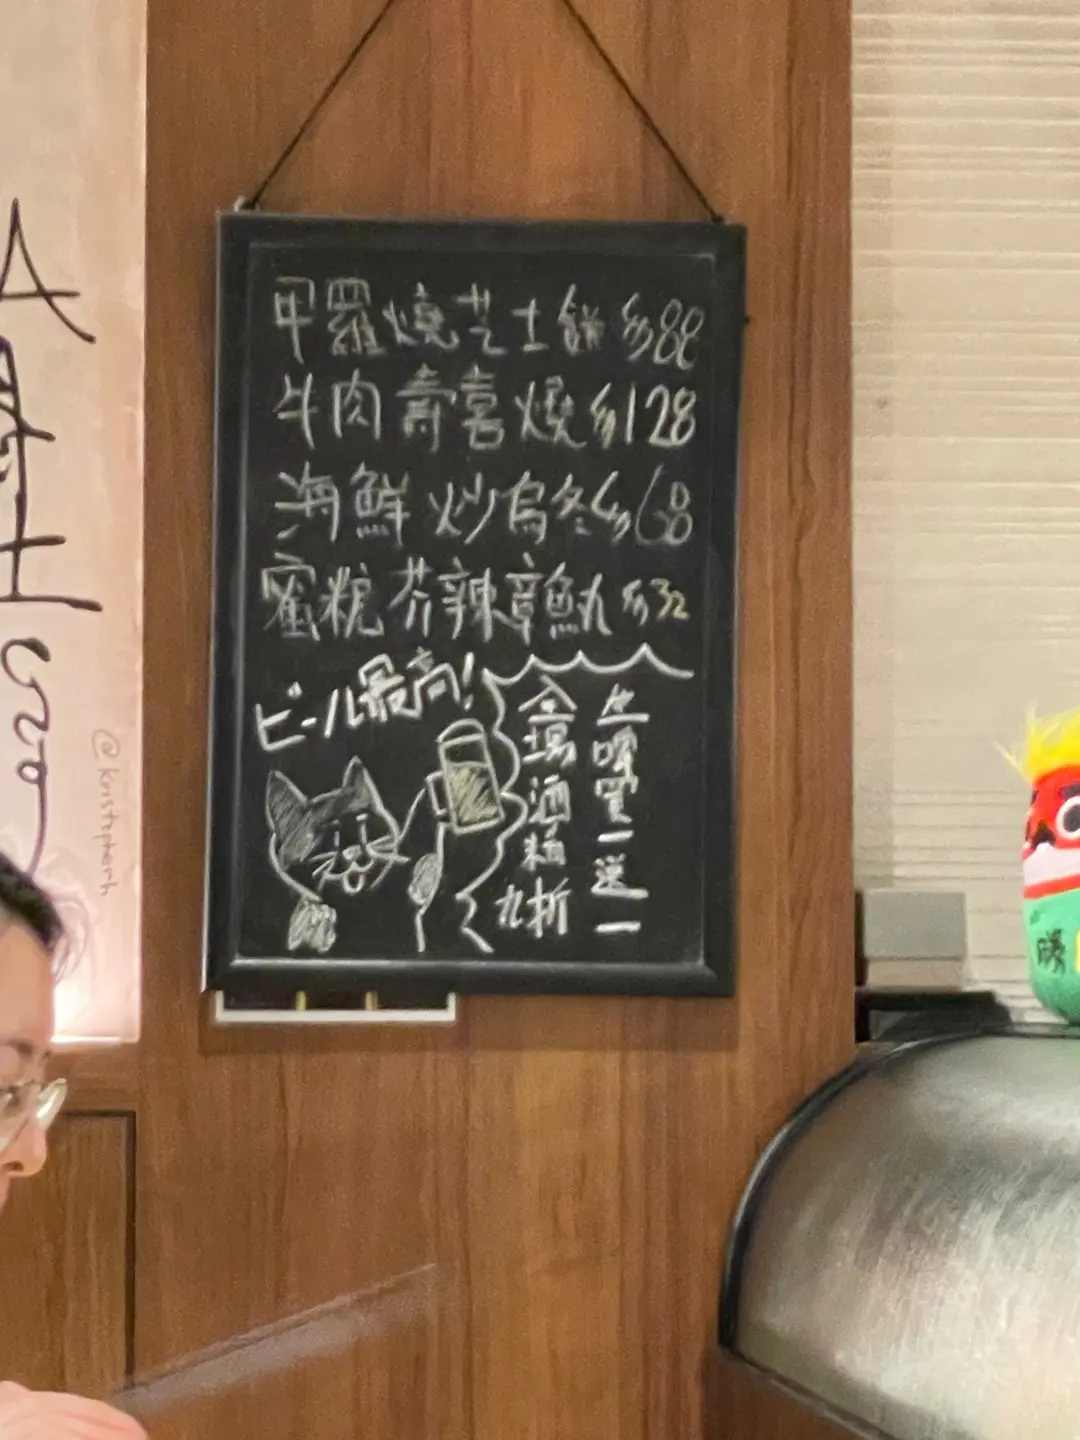 甲羅燒芝士餅 $88
牛肉壽喜燒 $128
海鮮炒烏冬 $68
蜜糖芥辣章魚丸 $32
ビール最高！
生啤買一送一
全場酒精九折
@kristopherh
勝